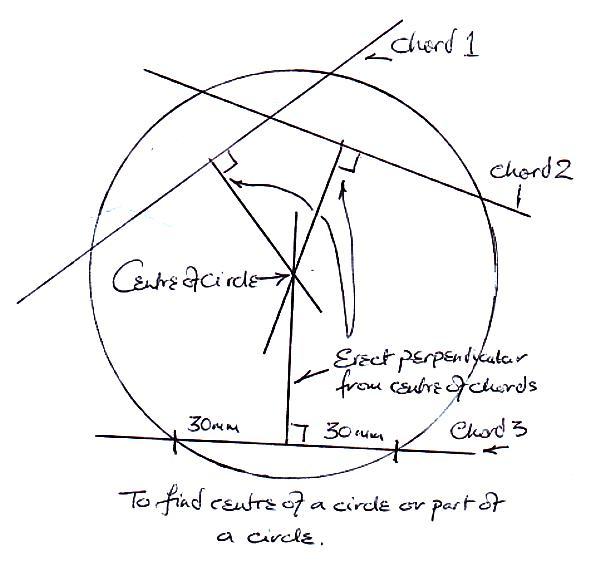 Chord 1
Chord 2
Centre of circle
Erect perpendycular
from centre of chords
30mm
30mm
Chord 3
To find centre of a circle or part of
a circle.